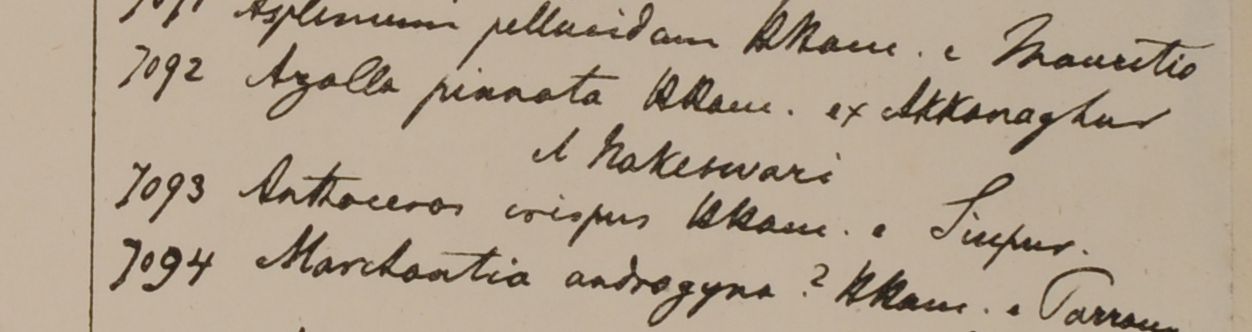 7091 Asplenium pellucidam HHam. e Mauritio
7092 Azolla pinnata HHam. ex Akkanaghur
et Nakeswari
7093 Anthoceros crispus HHam. e Sinpur.
7094 Marchantia androgyna ? HHam. e